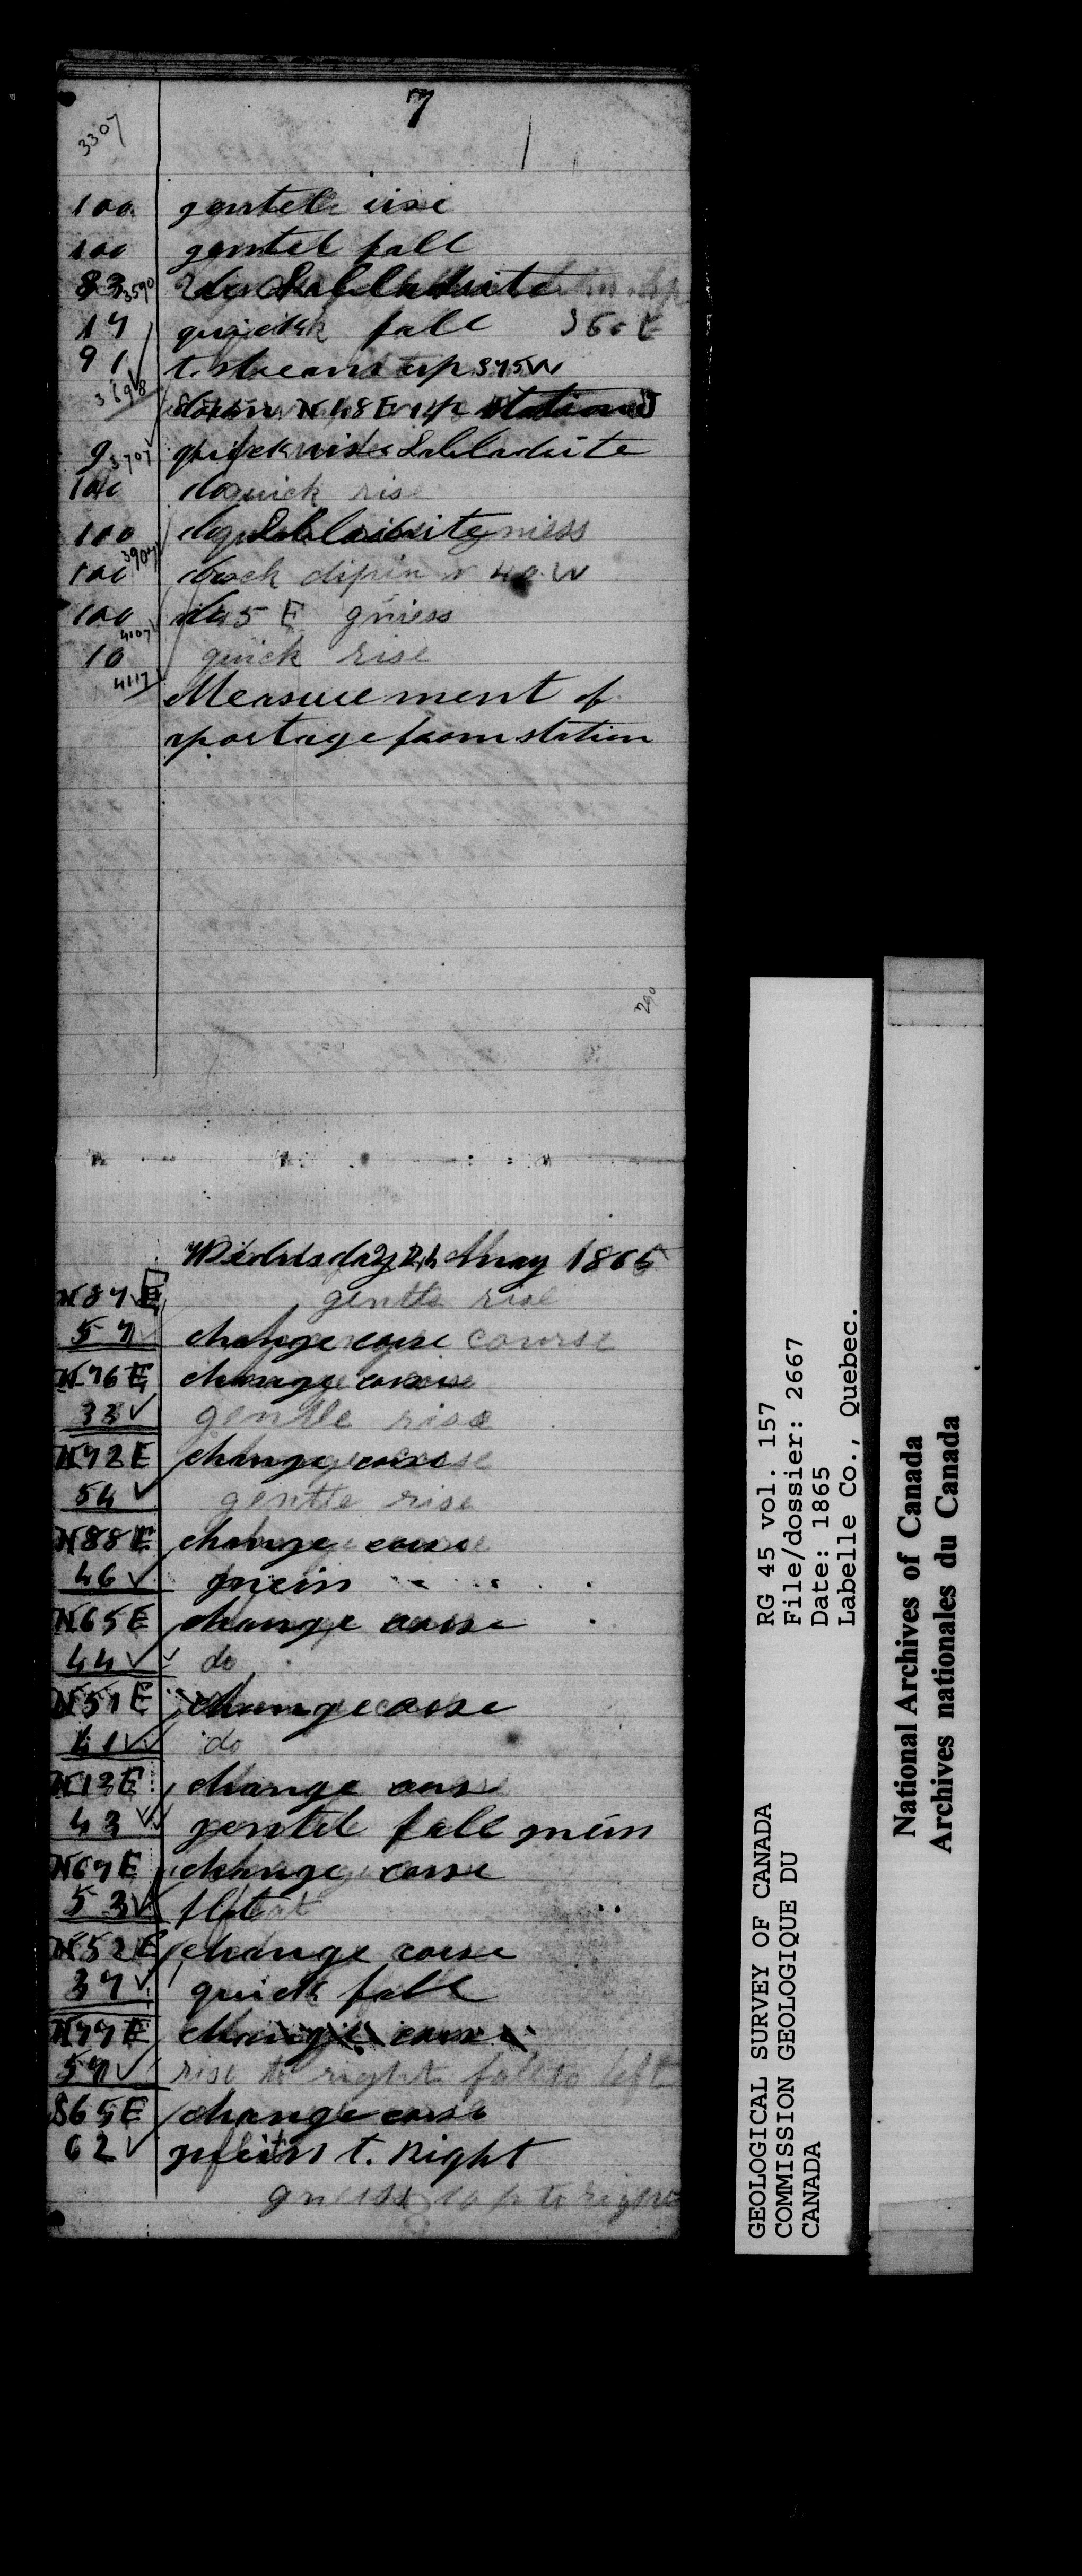 7
3307
100 gentele rise
100 gentel fall
83 3590 do Labladurite
17 quick fall S60E
91 t. stream up S75W
3698 down N48E up station
9 3707 quick rise Labladuite
100 do quick rise
100 do Labladuite gniess
100 3907 do rock dip in N 40 W
100 do 45 E gniess
4107
10 quick rise
4117 Measurement of
portage from station
290
Wednsday 24 May 1865
N87E gentle rise
57 change corse course
N76E change corse
33 gentle rise
N72E change corse
54 gentle rise
N88E change corse
46 gneiss
N65E change corse
44 do
N51E change corse
41 do
N13E change corse
43 gentel fall gneiss
N67E change corse
53 flat
N52E change corse
37 quick fall
N77E change corse
57 rise to right fall to left
S65E change corse
62 gneiss t. right
gneiss to right
GEOLOGICAL SURVEY OF CANADA
COMMISSION GEOLOGIQUE DU
CANADA
RG 45 vol. 157
File/dossier: 2667
Date: 1865
Labelle Co., Quebec.
National Archives of Canada
Archives nationales du Canada